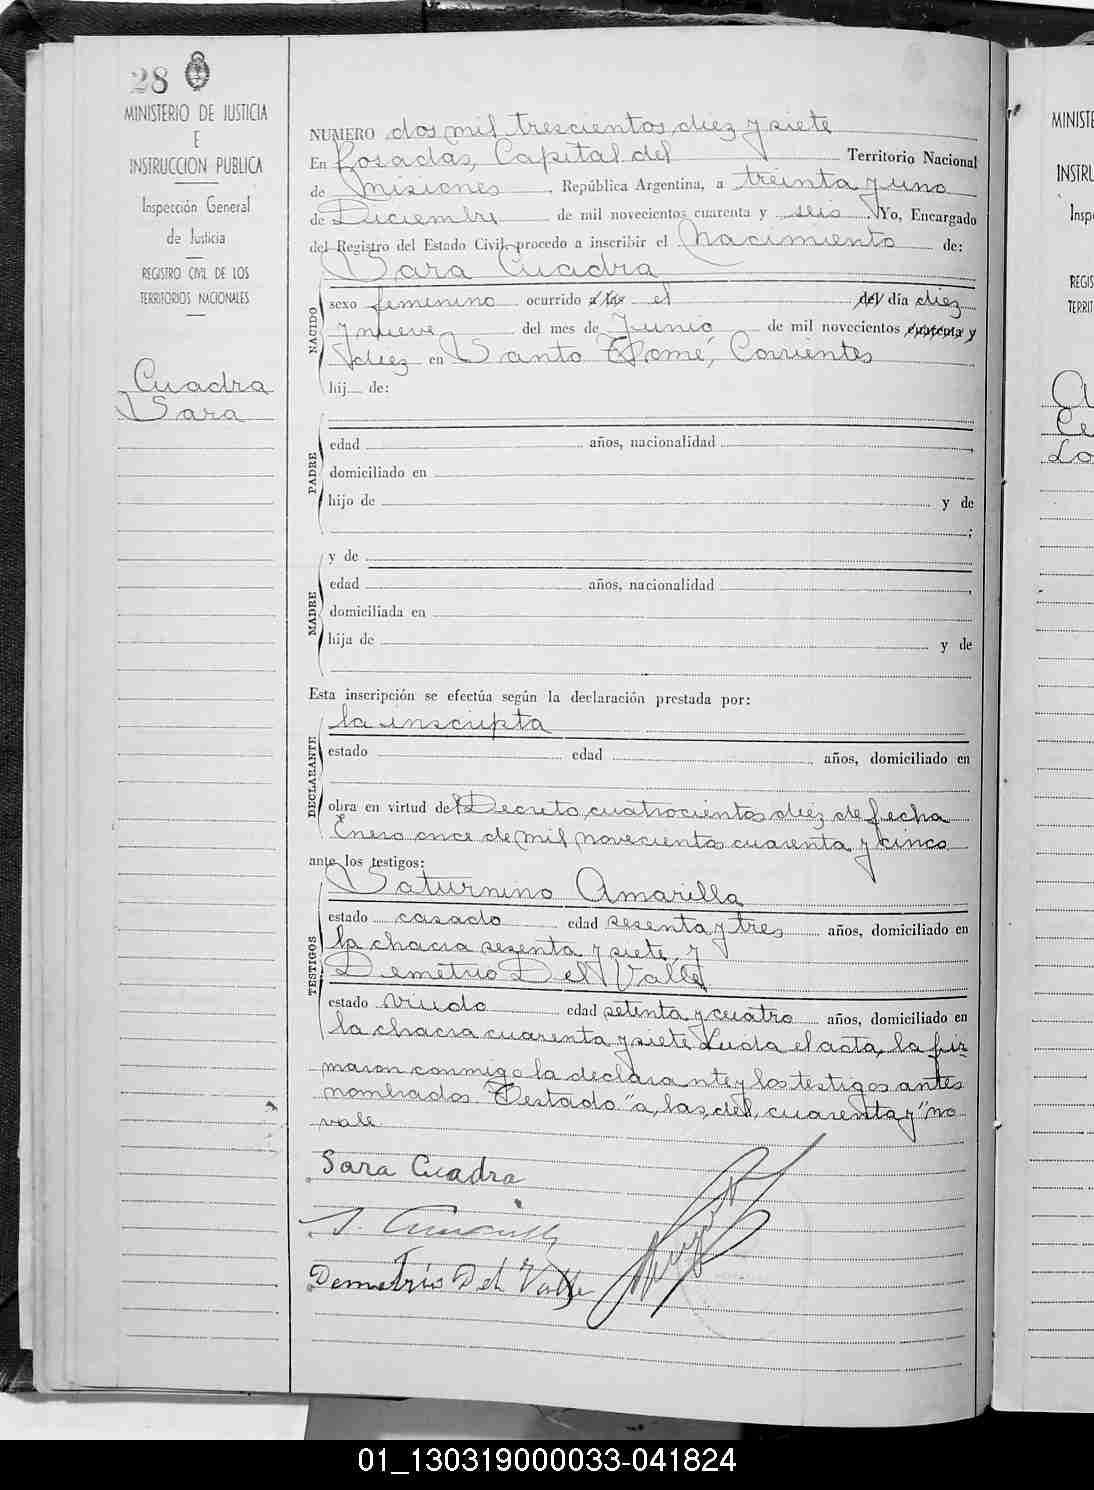 28
MINISTERIO DE JUSTICIA
E
INSTRUCCION PUBLICA
Inspección General
de Justicia
REGISTRO CIVIL DE LOS
TERRITORIOS NACIONALES
Cuadra
Sara
NUMERO dos mil trescientos diez y siete
En Posadas, Capital del Territorio Nacional
de Misiones, República Argentina, a treinta y uno
de Diciembre de mil novecientos cuarenta y seis. Yo, Encargado
del Registro del Estado Civil, procedo a inscribir el Nacimiento de:
Sara Cuadra
NACIDO
sexo femenino ocurrido a las el del día diez
y nueve del mes de Junio de mil novecientos cuarenta y
diez en Santo Tomé, Corrientes
hij de:
PADRE
edad años, nacionalidad ,
domiciliado en
hijo de y de
;
MADRE
y de
edad años, nacionalidad ,
domiciliada en
hija de y de
Esta inscripción se efectúa según la declaración prestada por:
DECLARANTE
la inscripta
estado edad años, domiciliado en
obra en virtud del Decreto cuatrocientos diez de fecha
Enero once de mil novecientos cuarenta y cinco
ante los testigos:
TESTIGOS
Saturnino Amarilla
estado casado edad sesenta y tres años, domiciliado en
la chacra sesenta y siete, y
Demetrio Del Valle
estado viudo edad setenta y cuatro años, domiciliado en
la chacra cuarenta y siete Leida el acta, la fir-
maron conmigo la declarante y los testigos antes
nombrados. Testado "a, las, del, cuarenta y" no
vale
Sara Cuadra
S. Amarilla
Demetrio Del Valle
MINISTE
INSTRU
Insp
REGIS
TERRIT
01_130319000033-041824